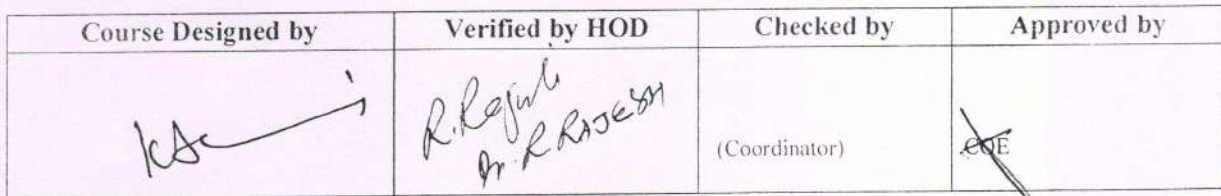 Course Designed by Verified by HOD Checked by Approved by
R. Rajesh
Dr. R RAJESH
(Coordinator)
COE